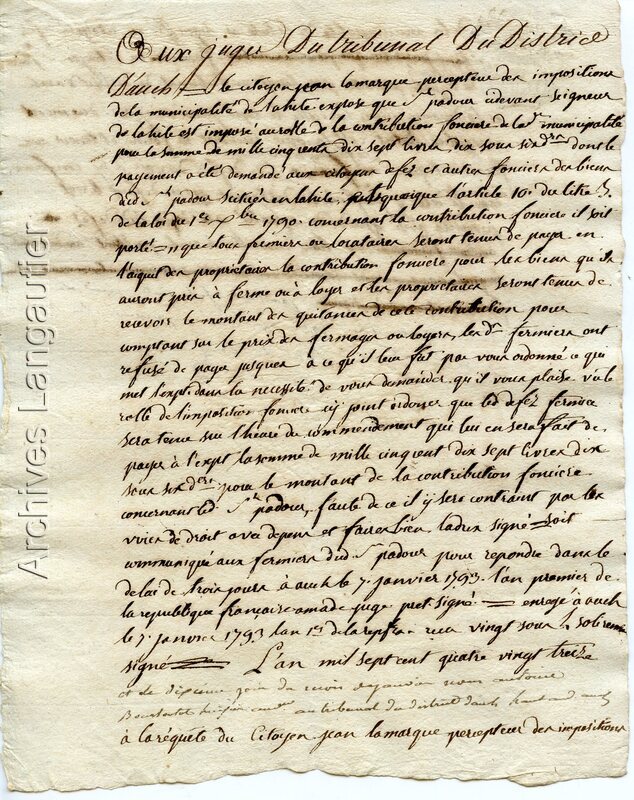 Aux juges Du tribunal Du District
D'auch = le citoyen jean lamarque percepteur des impositions
de la municipalité de lahite expose que Sr. padour cidevant seigneur
de lahite est imposé au rolle de la contribution fonciere de lad. municipalité
pour la somme de mille cinquente dix sept livres dix sous six drs. dont le
payement a été demandé aux citoyen defez et autres fermiers des biens
dud. Sr. padour scitués en lahite, quoique l'article 10. du titre 3.
de la loi du 1er Xbre 1790. concernant la contribution fonciere il soit
porté = que tous fermiers ou locataires seront tenus de payer en
l'aquit des proprietaires la contribution fonciere pour les biens qu'ils
auront pris à ferme ou à loyer et les proprietaires seront tenus de
recevoir le montant des quitances de cete contribution pour
comptant sur le prix des fermages ou loyers, les ds. fermiers ont
refusé de payer jusques à ce qu'il leur fut par vous ordonné ce qui
met l'expt. dans la necessité de vous demander, qu'il vous plaise vu le
rolle de l'imposition fonciere cy joint ordonner que led. defez fermier
sera tenu sur l'heure du commendement qui lui en sera fait de
payer à l'expt. la somme de mille cinquent dix sept livres dix
sous six drs. pour le montant de la contribution fonciere
concernant led. Sr. padour, faute de ce il y sera contraint par les
voies de droit avec depens et faires bien, ladrix signé = soit
communiqué aux fermiers dud. Sr. padour pour repondre dans le
delai de trois jours à auch le 7. janvier 1793. l'an premier de
la republique françoise amade juge pret. signé = enregé. à auch
le 7. janvier 1793 lan 1er. de la repfse. reçu vingt sous
signé = L'an mil sept cent quatre vingt treize
et le dixieme jour du mois de janvier nous antoine
huissier au tribunal du district dauch
à la réquete du Citoyen jean lamarque percepteur des impositions
Archives Langautier